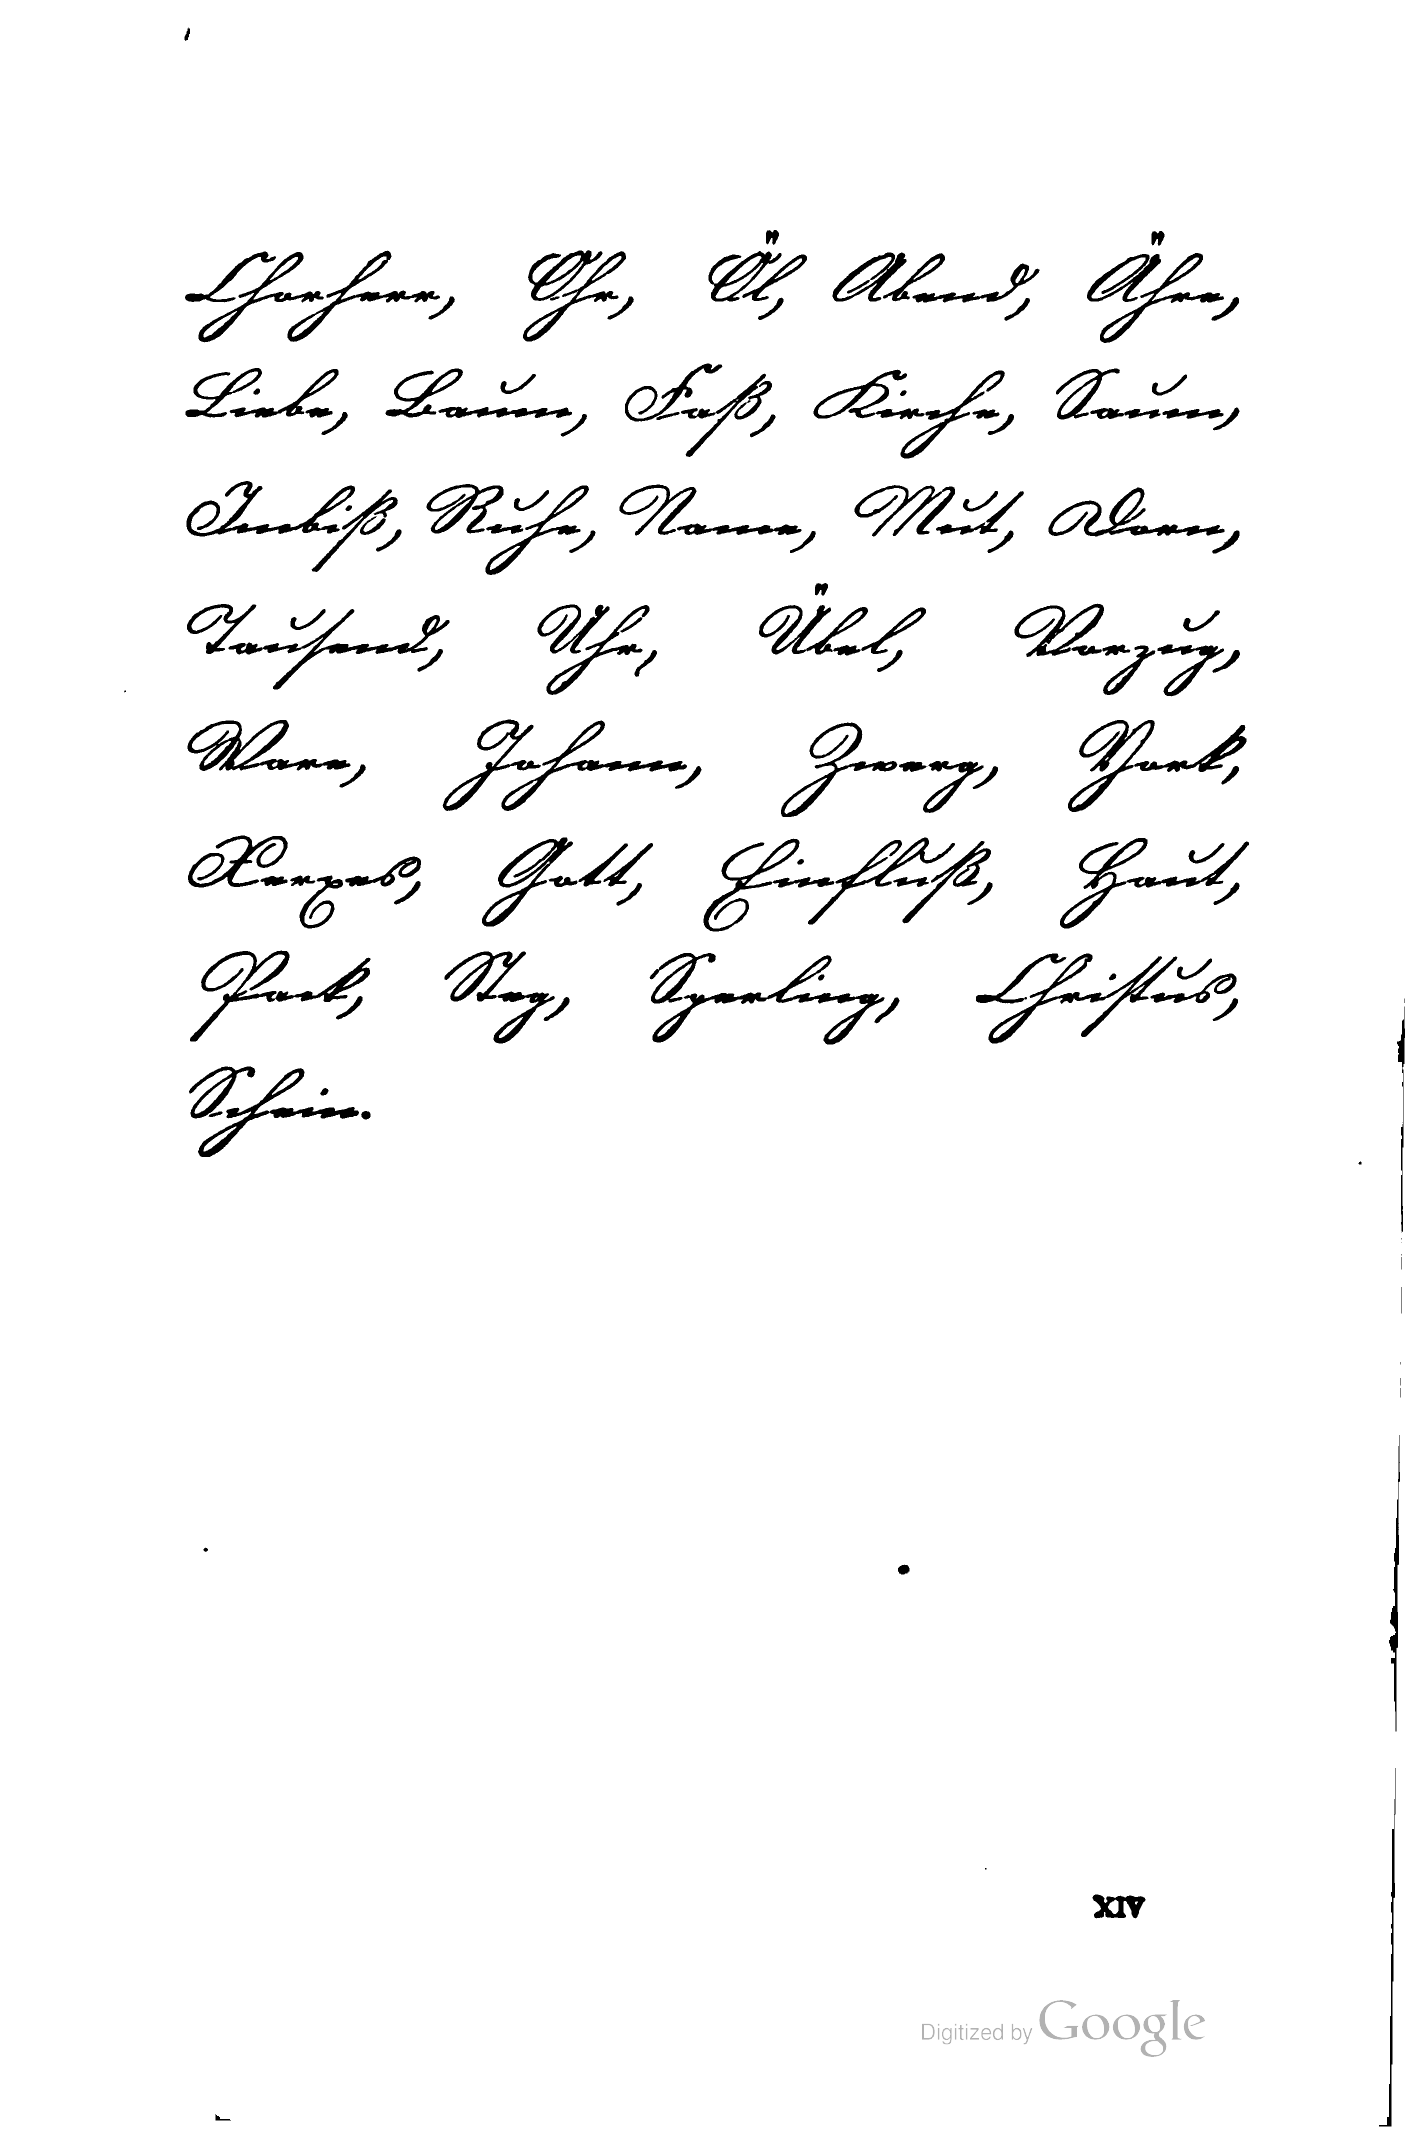 Chorherr, Ohr, Öl, Abend, Ähre,
Liebe, Baum, Faß, Kirche, Saum,
Imbiß, Ruhe, Name, Mut, Dorn,
Tausend, Uhr, Übel, Vorzug,
Ware, Johann, Zwerg, York,
Xerxes, Gott, Einfluß, Haut,
Pack, Steg, Sperling, Christus,
Schein.
XIV
Digitized by Google